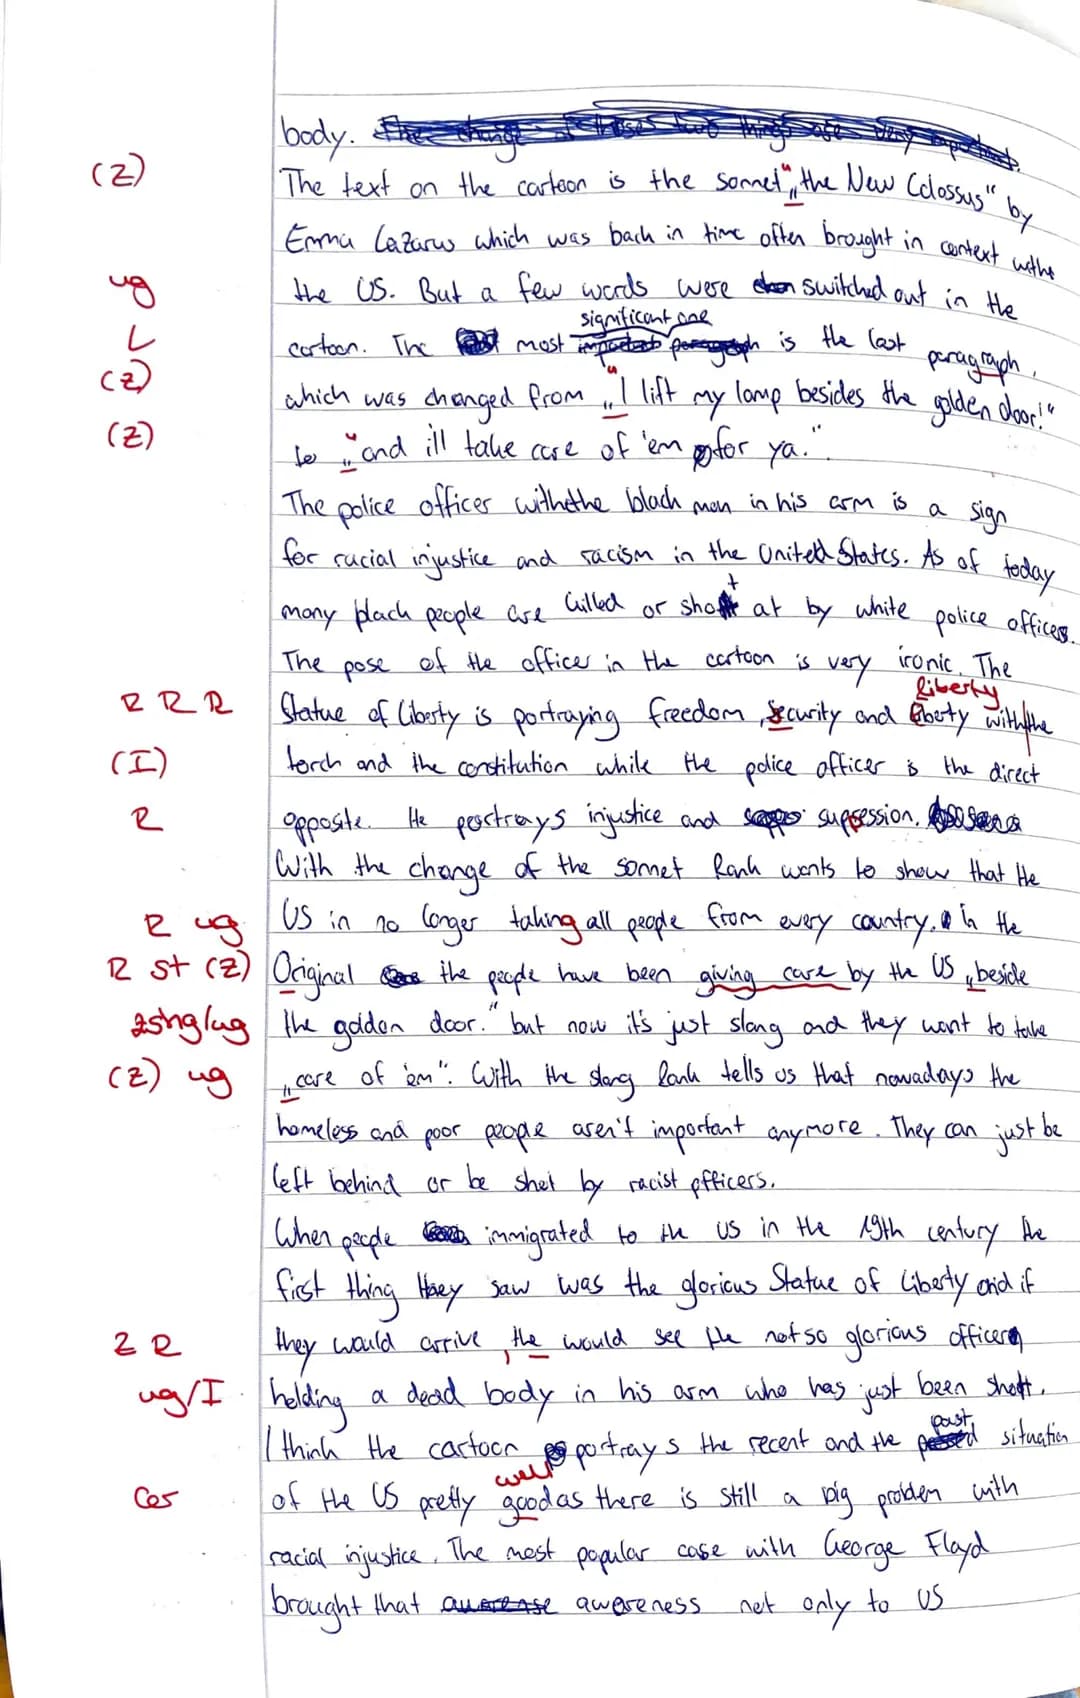 body. The change of those two things are very important.
(Z) The text on the cartoon is the sonnet "„the New Colossus" by
Emma Lazarus which was back in time often brought in context withe
ug the US. But a few words were switched out in the
significant one
L cartoon. The most important paragraph is the last paragraph,
(Z) which was changed from "„I lift my lamp besides the golden door!"
(Z) to "„and ill take care of 'em for ya.".
The police officer withethe black man in his arm is a sign
for racial injustice and racism in the United States. As of today
many black people are killed or shot at by white police officers.
The pose of the officer in the cartoon is very ironic. The
liberty
R R R Statue of Liberty is portraying freedom, Security and liberty with the
(I) torch and the constitution while the police officer is the direct
R opposite. He portrays injustice and supression.
With the change of the sonnet Rank wants to show that the
R ug US in no longer taking all people from every country. In the
R st (Z) Original the people have been giving care by the US „beside
ug the golden door." but now it's just slang and they want to take
(Z) ug „care of 'em". With the slang Rank tells us that nowadays the
homeless and poor people aren't important anymore. They can just be
left behind or be shot by racist officers.
When people immigrated to the US in the 19th century the
first thing they saw was the glorious Statue of Liberty and if
Z R they would arrive, the would see the not so glorious officer
ug/I holding a dead body in his arm who has just been shott.
past
I think the cartoon portrays the recent and the passed situation
well
Ces of the US pretty good as there is still a big problem with
racial injustice. The most popular case with George Floyd
brought that awarense awereness not only to US